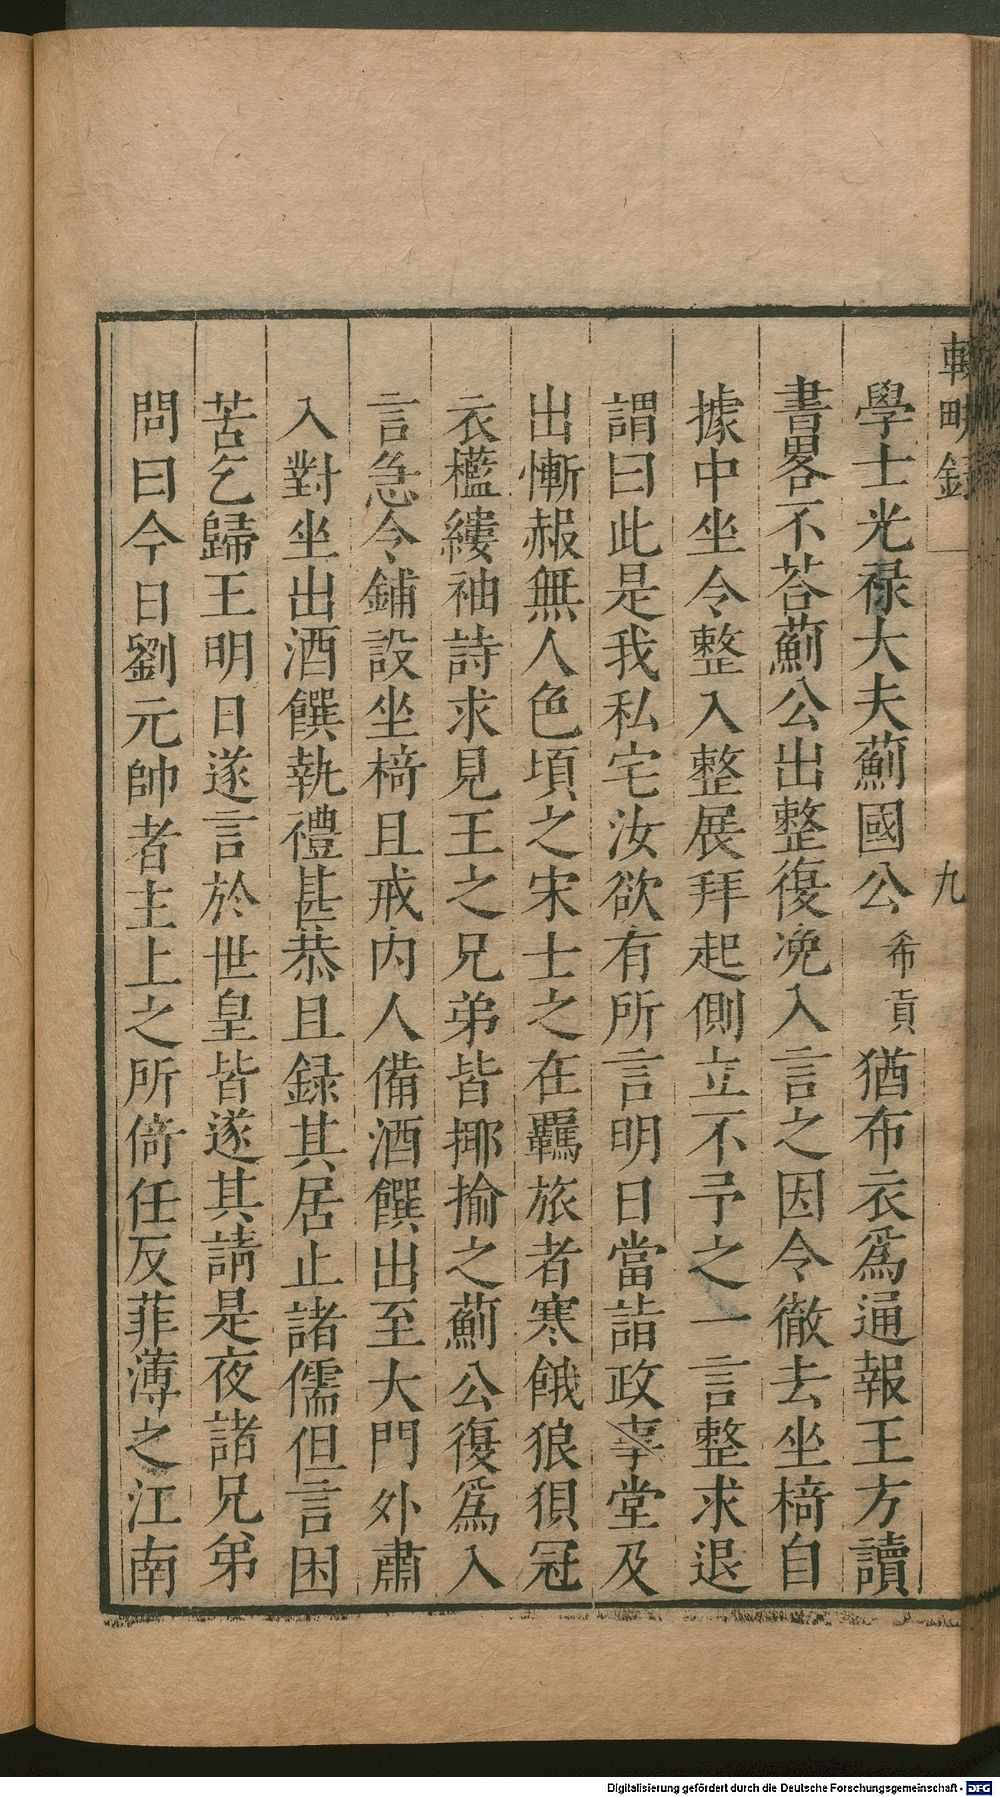 輟畊錄 九
學士光祿大夫薊國公希貢猶布衣爲通報王方讀
書畧不荅薊公出整復凂入言之因令徹去坐椅自
據中坐令整入整展拜起側立不予之一言整求退
謂曰此是我私宅汝欲有所言明日當詣政事堂及
出慚赧無人色頃之宋士之在羈旅者寒餓狼狽冠
衣襤縷袖詩求見王之兄弟皆揶揄之薊公復爲入
言急令鋪設坐椅且戒内人備酒饌出至大門外肅
入對坐出酒饌執禮甚恭且録其居止諸儒但言困
苦乞歸王明日遂言於世皇皆遂其請是夜諸兄弟
問曰今日劉元帥者主上之所倚任反菲薄之江南
Digitalisierung gefördert durch die Deutsche Forschungsgemeinschaft - DFG